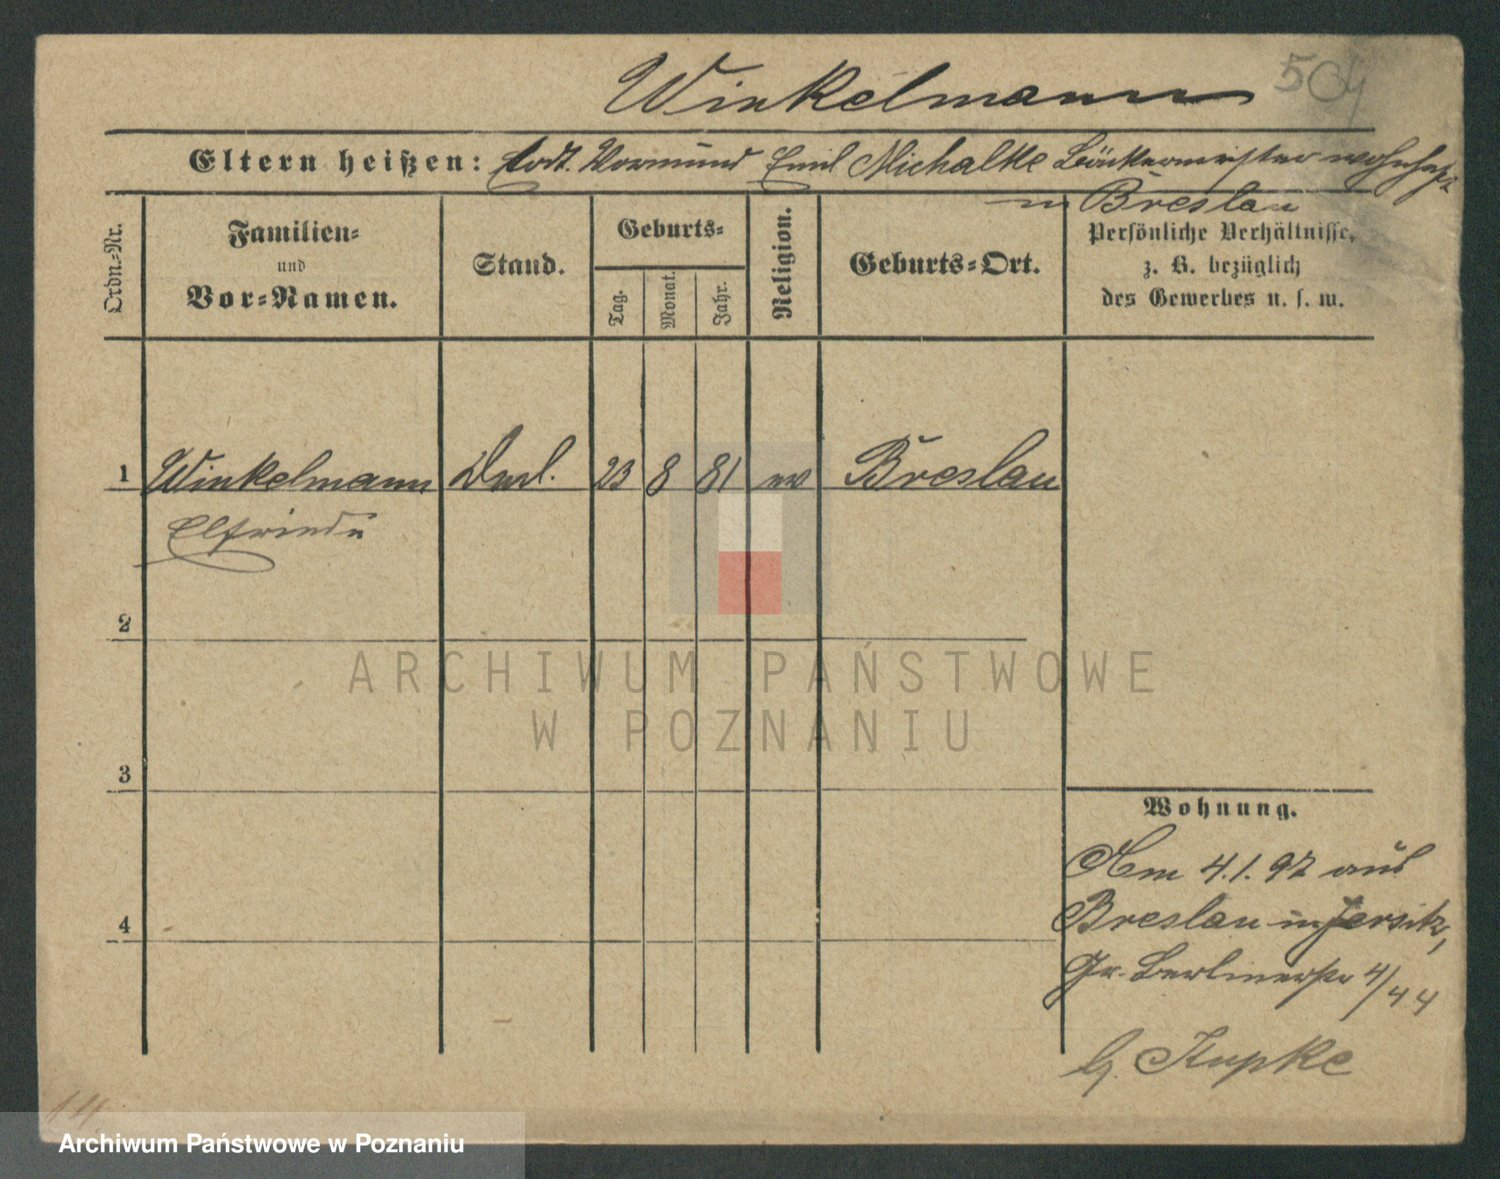 Winkelmann 504
Eltern heißen: todt. Vormund Emil Michalke Bäckermeister wohnhaft
in Breslau
Ordn.-Nr.
Familien-
und
Vor-Namen.
Stand.
Geburts-
Tag.
Monat.
Jahr.
Religion.
Geburts-Ort.
Persönliche Verhältnisse,
z. B. bezüglich
des Gewerbes u. s. w.
1 Winkelmann 23 8 81 ev Breslau
Elfriede
2
3
4
Wohnung.
Am 4.1.97 aus
Breslau in Jersitz,
Gr. Berlinerstr 4/44
b. Kupke
ARCHIWUM PAŃSTWOWE
W POZNANIU
Archiwum Państwowe w Poznaniu